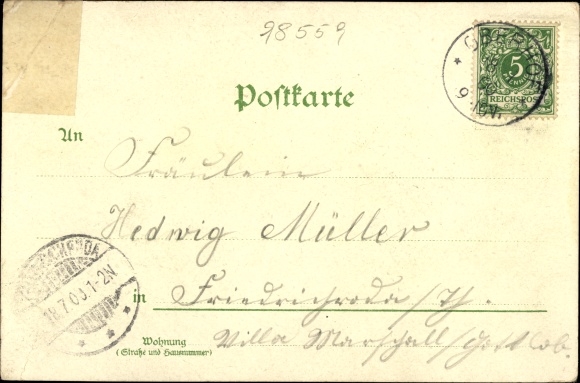 98559
5
REICHSPOST
Postkarte
An
Fräulein
Hedwig Müller
18.7.00. 1-2N
in Friedrichroda / Th.
Wohnung
(Straße und Hausnummer)
Villa Marschall /